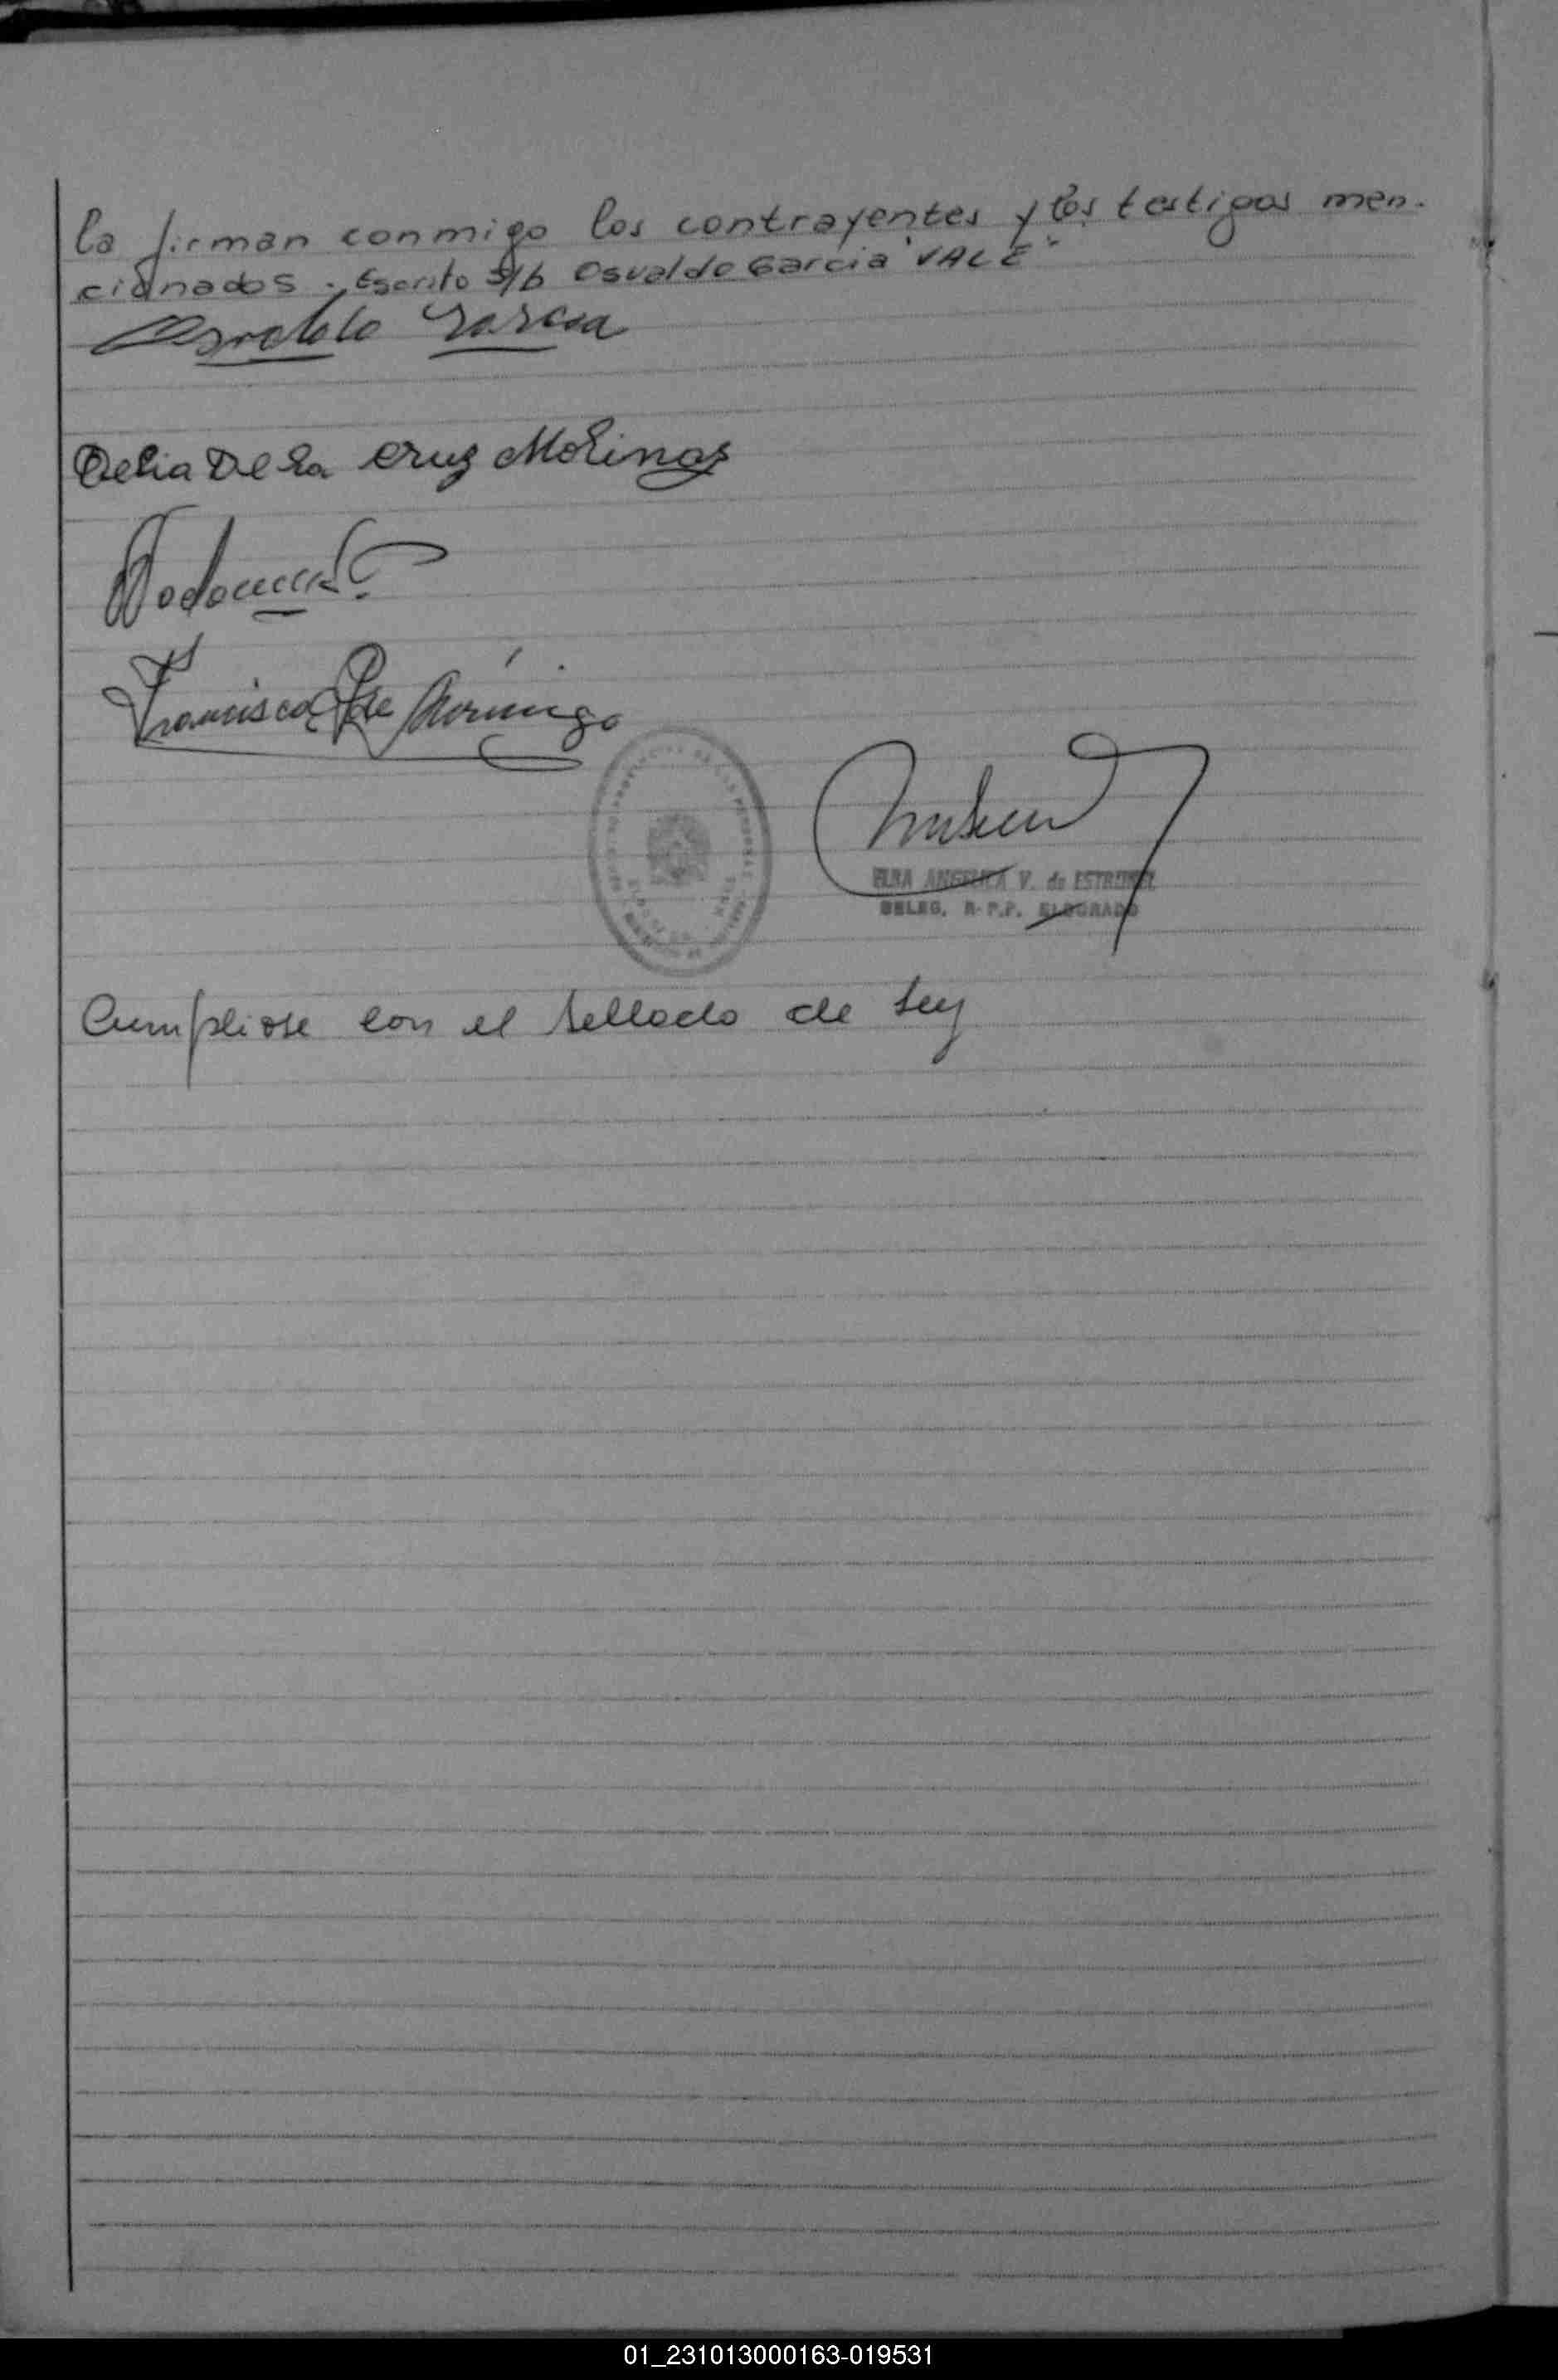 la firman conmigo los contrayentes y los testigos men-
cionados. Escrito S/b Osvaldo Garcia "VALE"
Osvaldo Garcia
Delia De la Cruz Molinas
Francisco
ELBA ANGELICA V. de
DELEG. R.P.P. ELDORADO
Cumpliose con el sellado de Ley
01_231013000163-019531